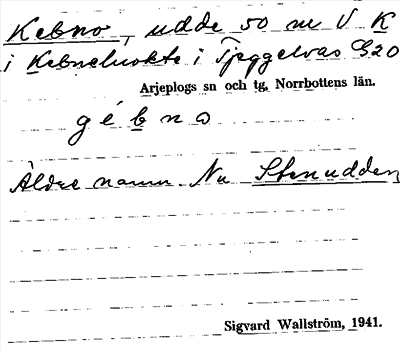 Kebno, udde 50 m V K
i Kebneluokte i Tjeggelvas G20
Arjeplogs sn och tg, Norrbottens län.
gébno
Äldre namn. Nu Stenudden
Sigvard Wallström, 1941.